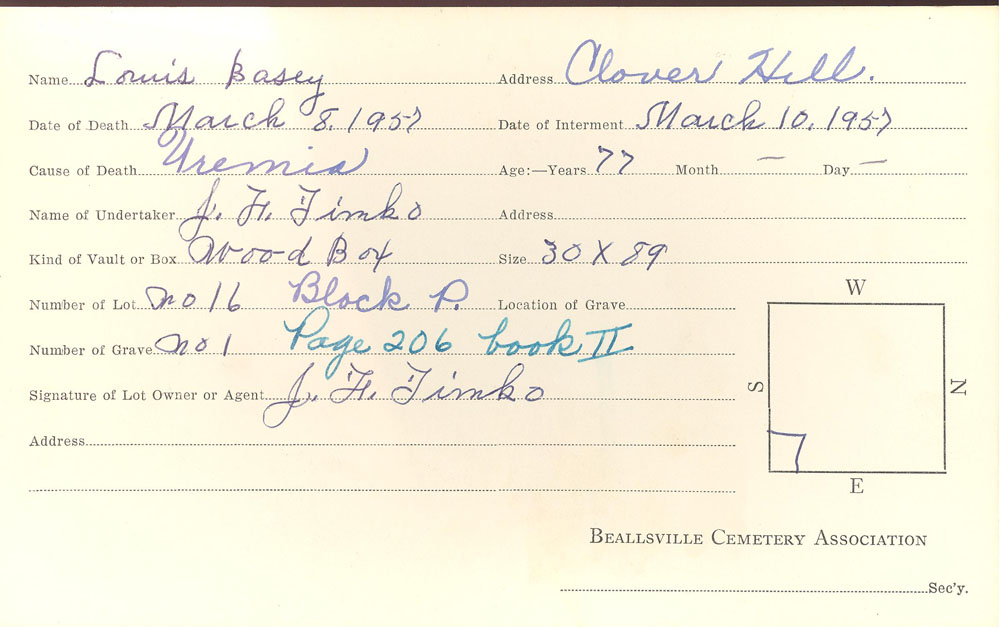 Name Louis Basey Address Clover Hill.
Date of Death March 8, 1957 Date of Interment March 10, 1957
Cause of Death Uremia Age:—Years 77 Month — Day —
Name of Undertaker J. F. Timko Address
Kind of Vault or Box Wood Box Size 30 X 89
Number of Lot No 16 Block P. Location of Grave
Number of Grave No 1 Page 206 book II
Signature of Lot Owner or Agent J. F. Timko
Address
W
S
N
E
BEALLSVILLE CEMETERY ASSOCIATION
Sec'y.